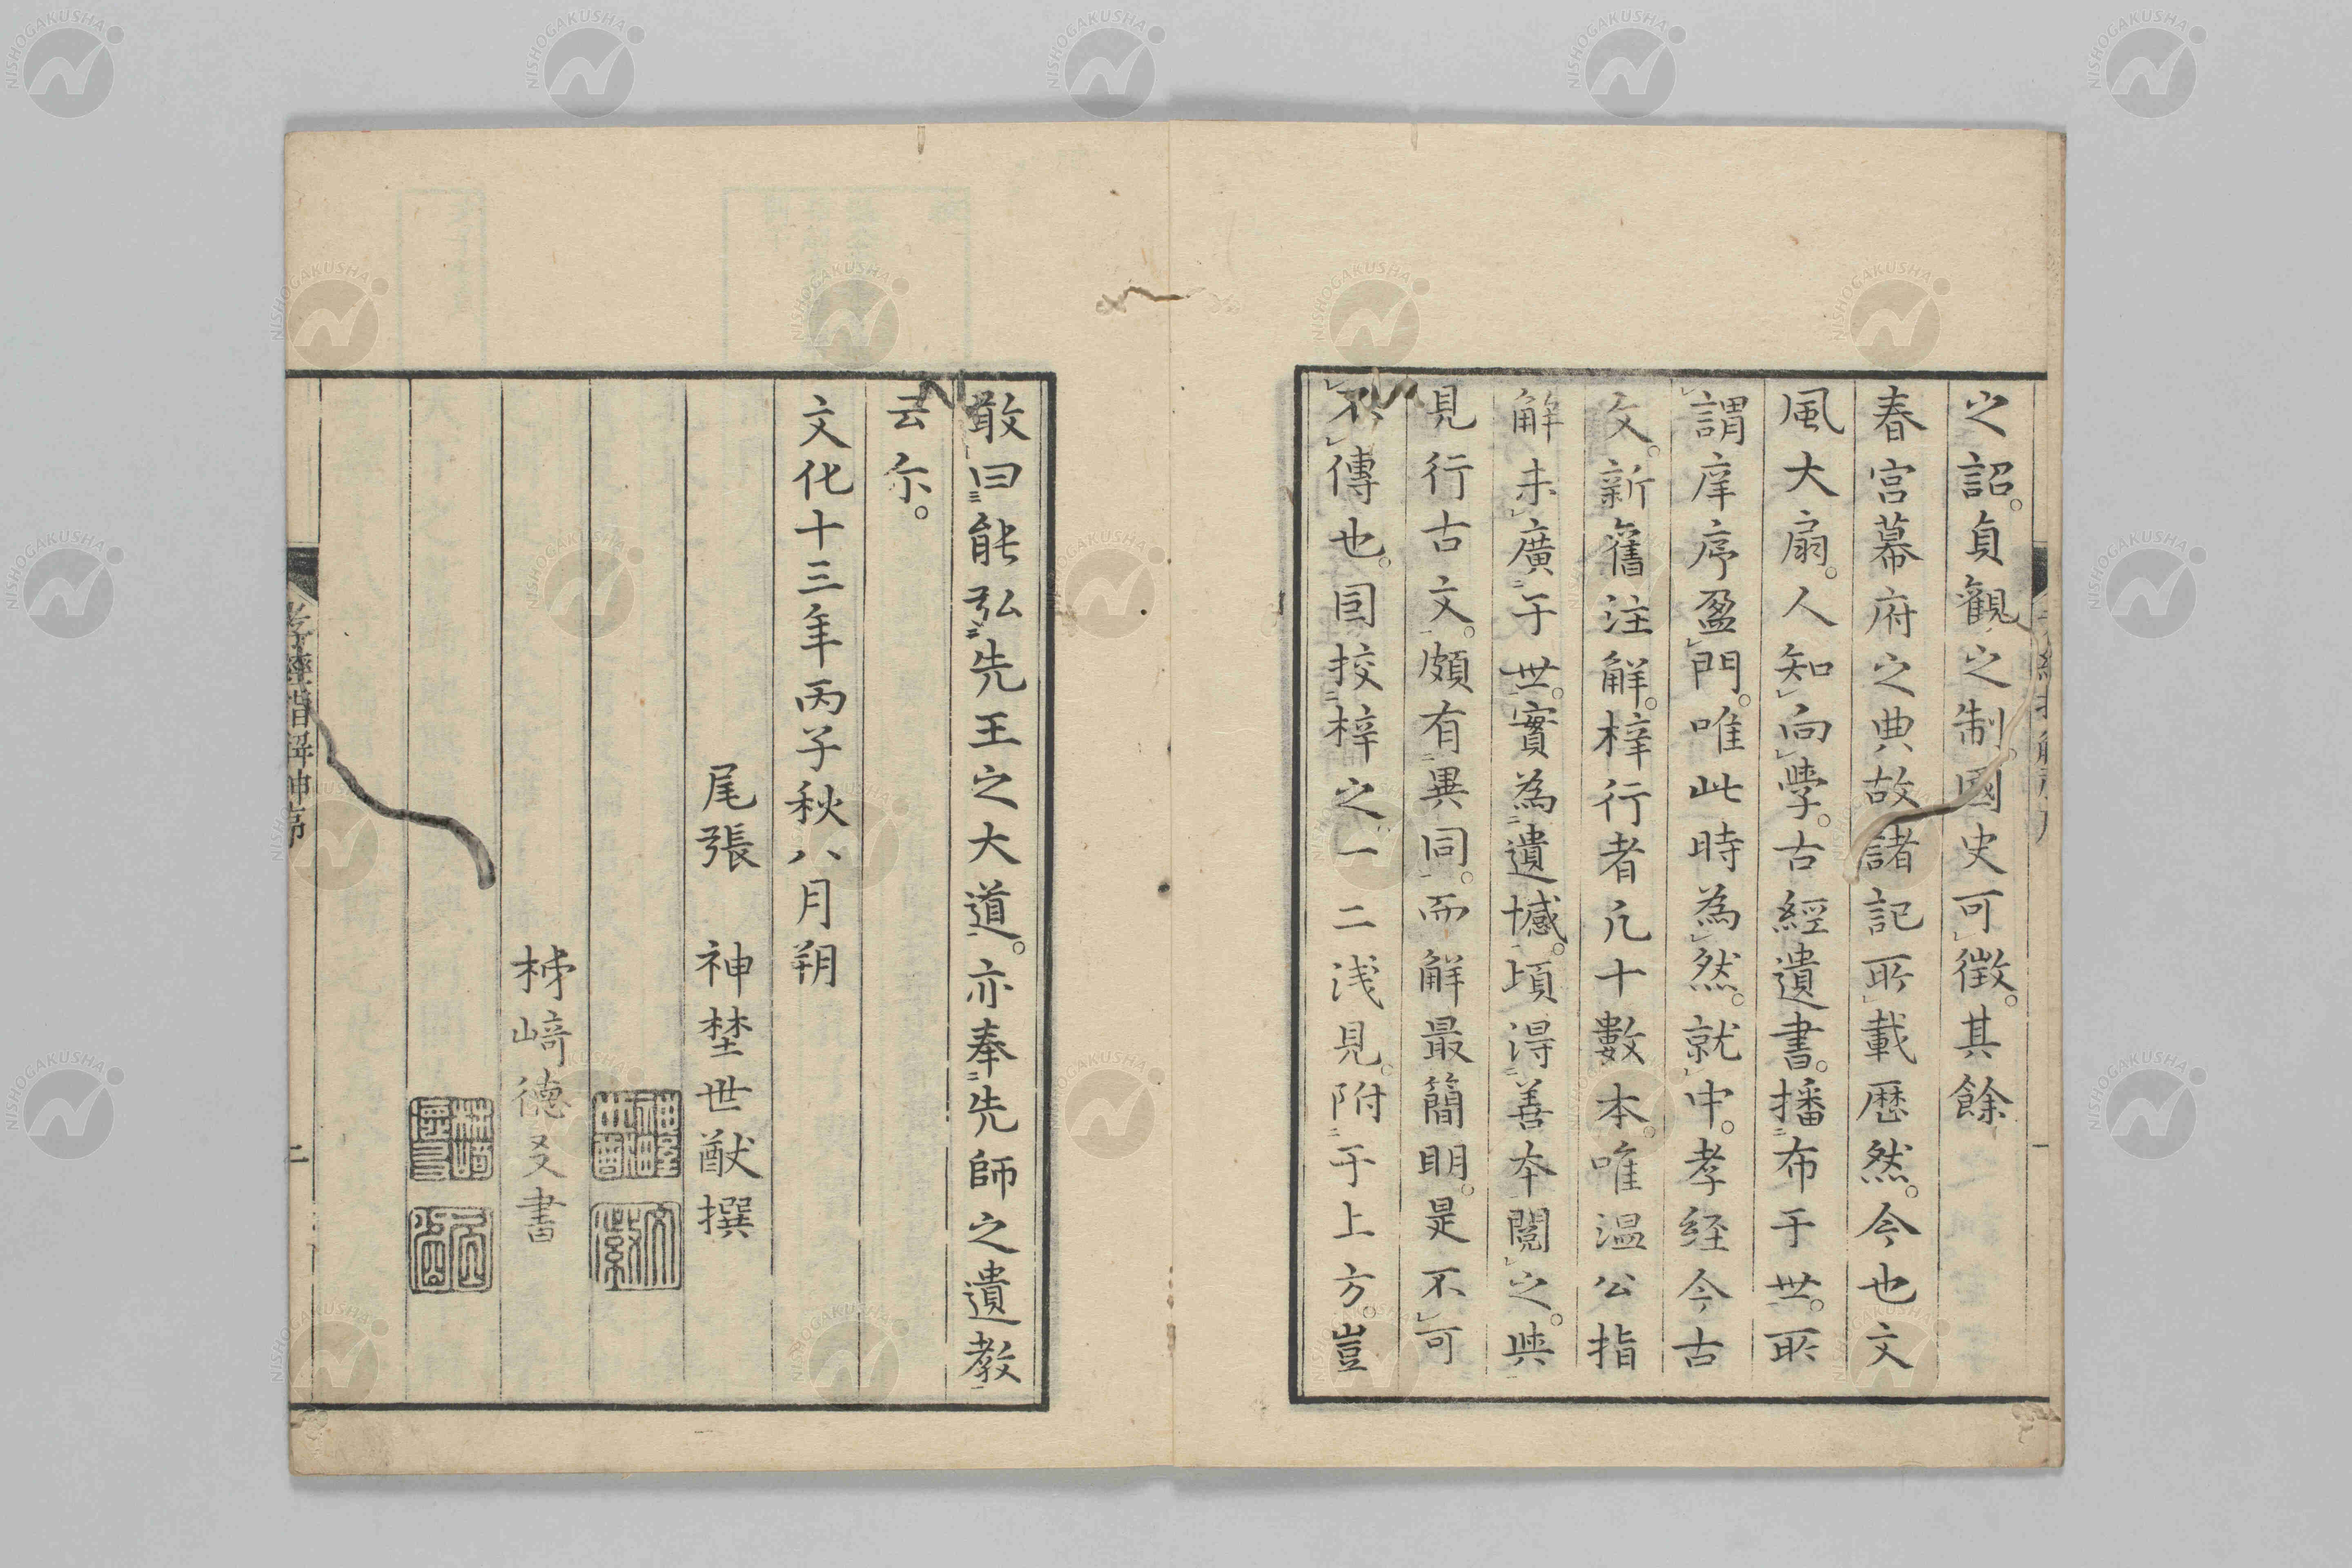 之詔。貞觀之制。國史可徵。其餘
春宮幕府之典故。諸記所載歷然。今也文
風大扇。人知向學。古經遺書。播布于世。所
謂庠序盈門。唯此時為然。就中。孝經今古
文。新舊注解。梓行者凡十數本。唯温公指
解未廣于世。實為遺憾。頃得善本閱之。與
見行古文。頗有異同。而解最簡明。是不可
不傳也。因挍梓之一二浅見。附于上方。豈
敢曰能弘先王之大道。亦奉先師之遺教
云尓。
文化十三年丙子秋八月朔
尾張 神埜世猷撰
柹﨑德叉書
孝經指解坤序
二
NISHOGAKUSHA